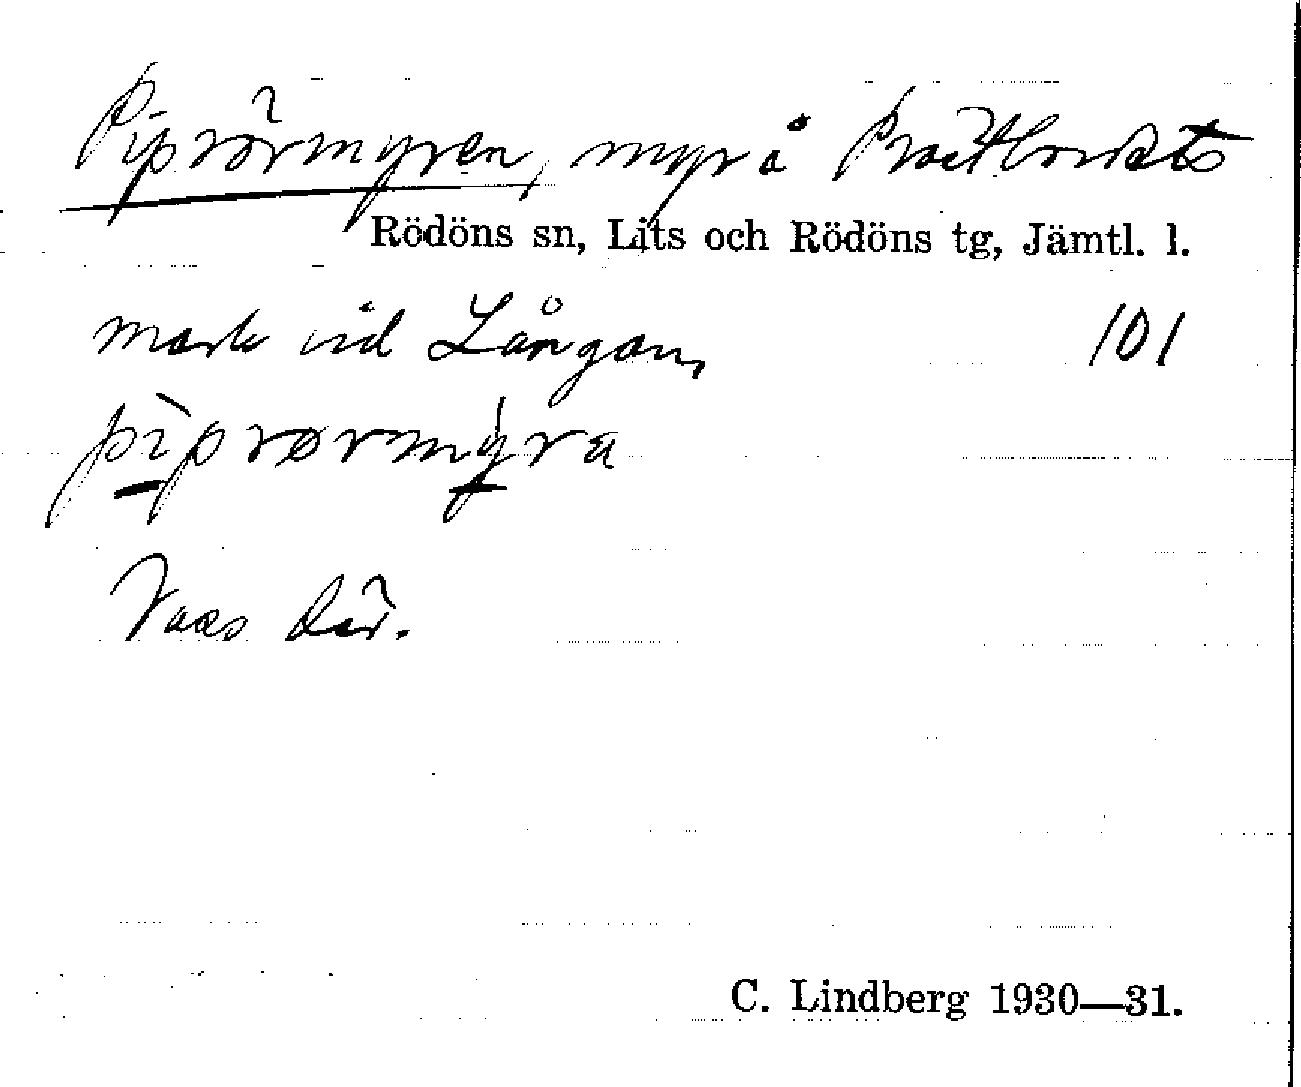 Piprörmyren, myr å Prästbordets
Rödöns sn, Lits och Rödöns tg, Jämtl. l.
mark vid Långan, 101
pìprørmy̍ra
Vass där.
C. Lindberg 1930—31.